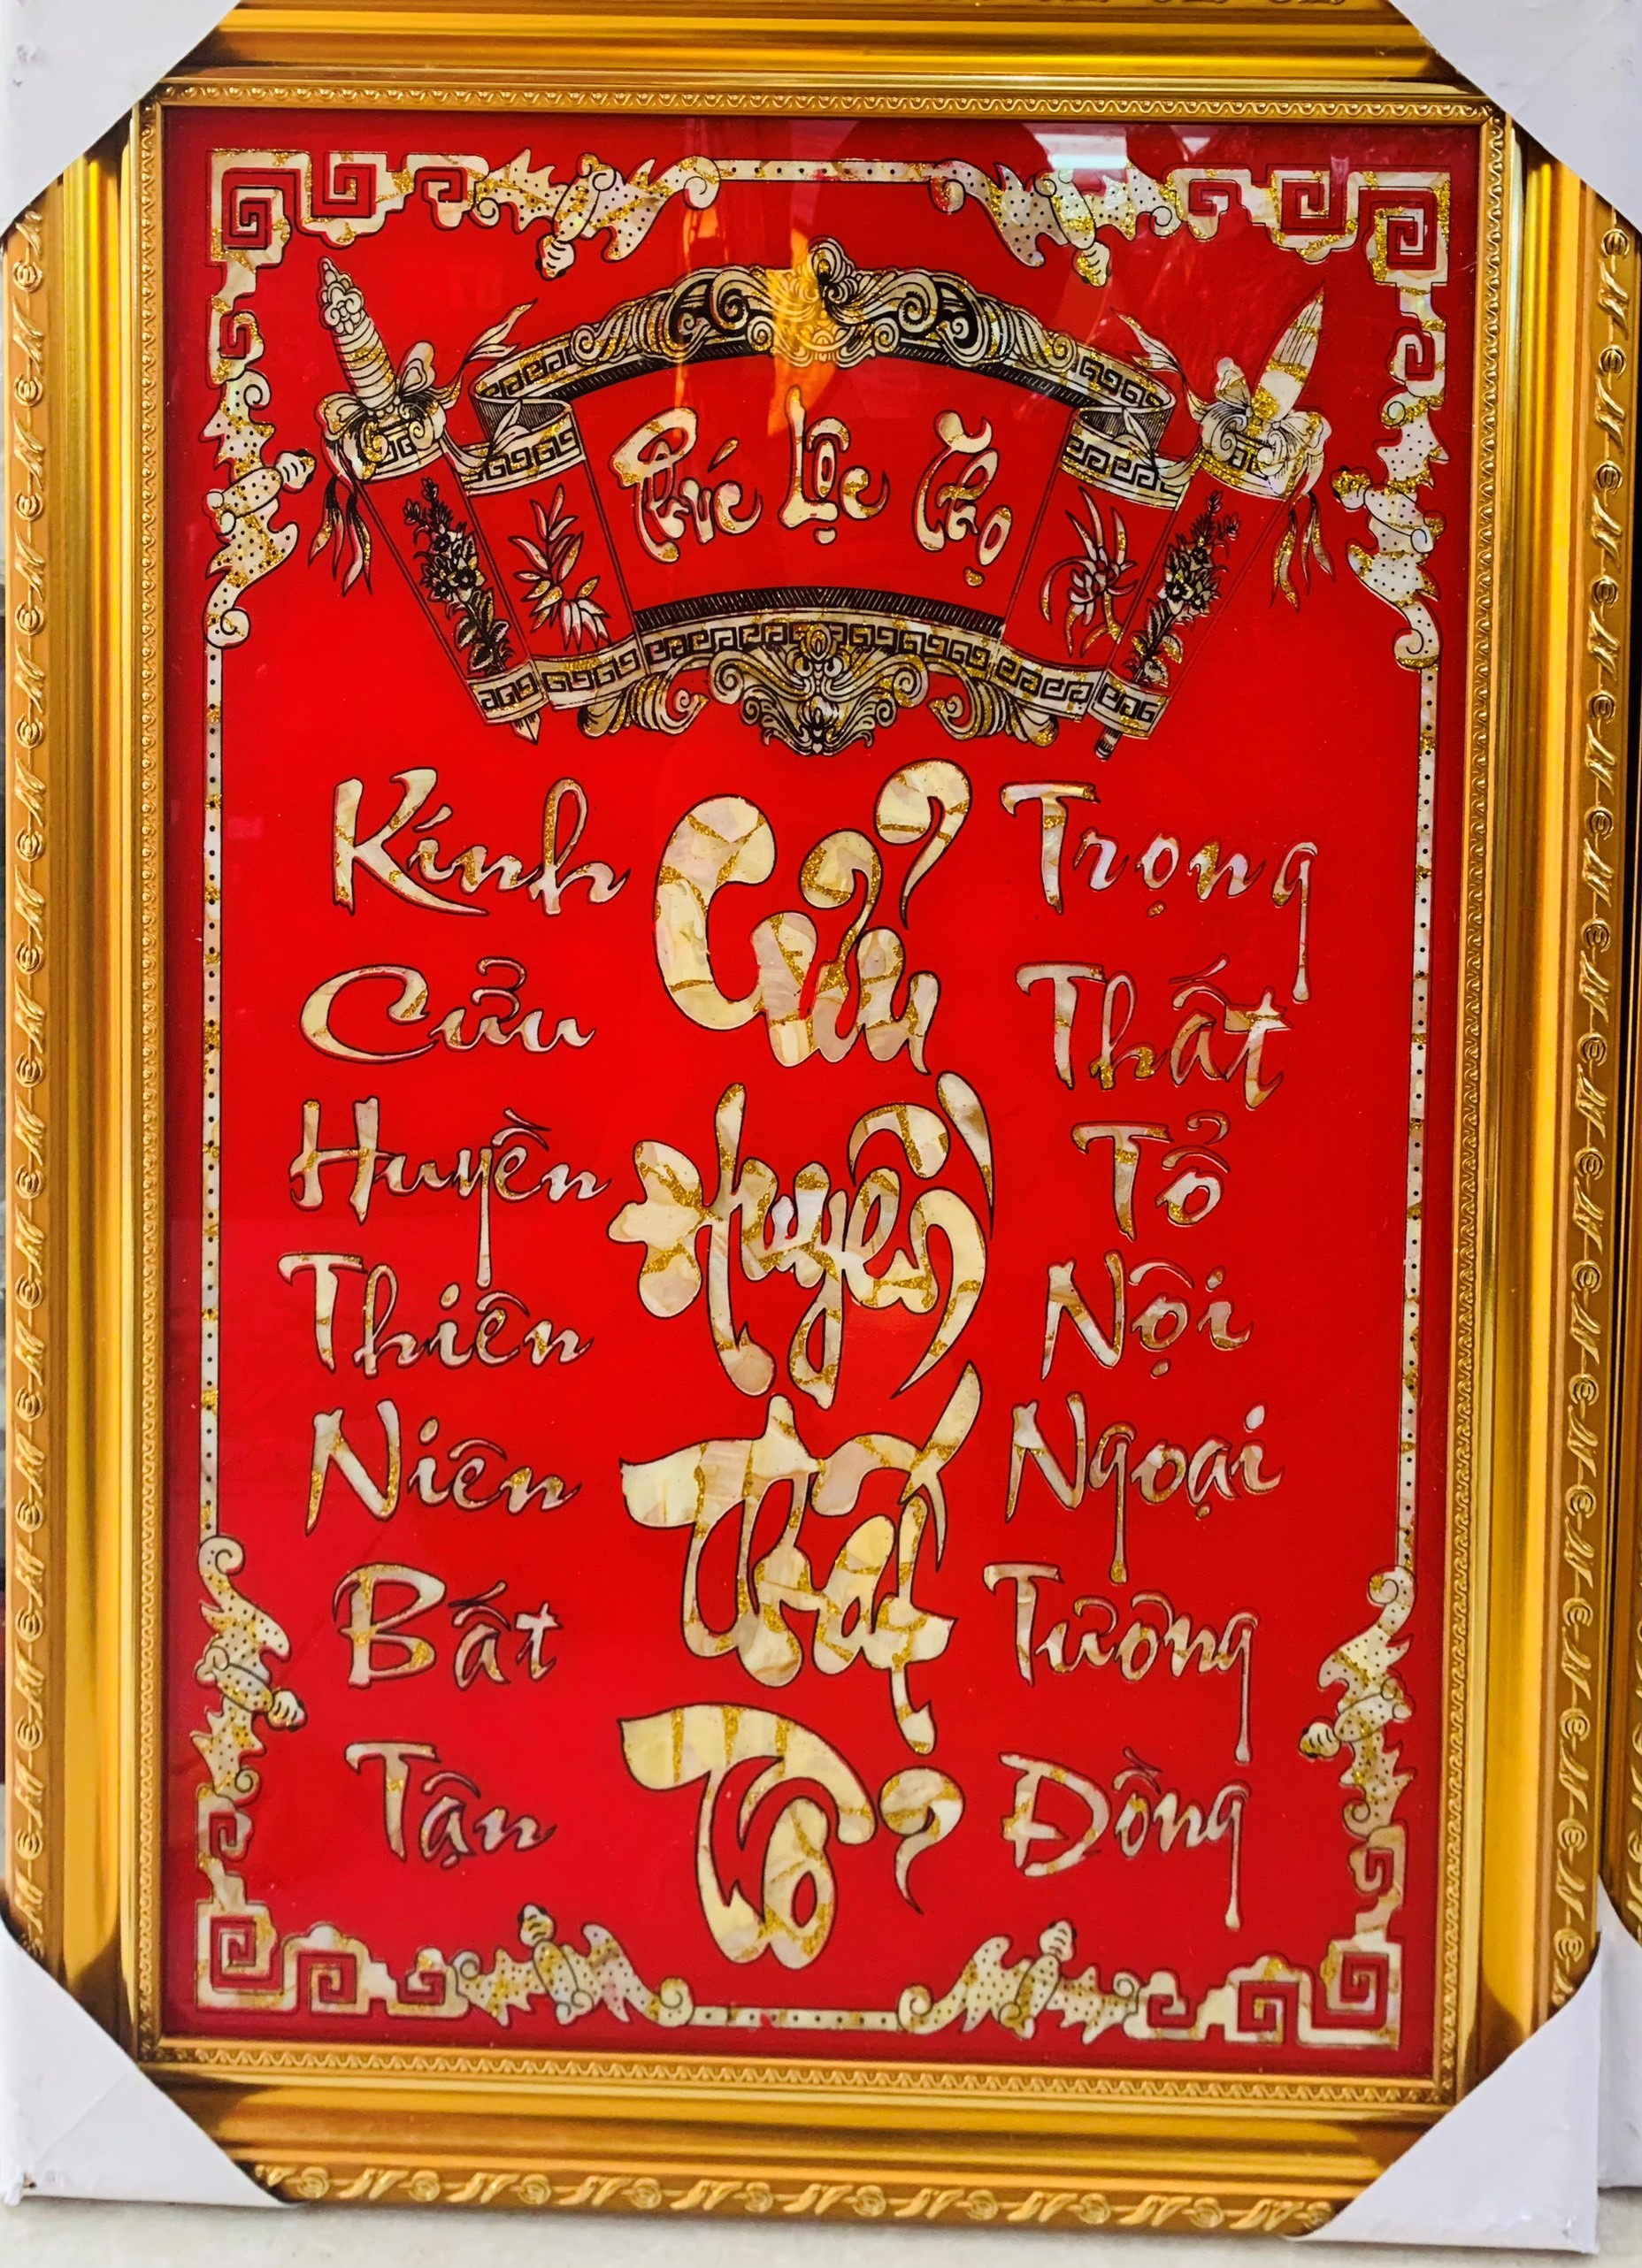 Phúc Lộc Thọ
Kính
Cửu
Huyền
Thiên
Niên
Bất
Tận
Cửu
Huyền
Thất
Tổ
Trọng
Thất
Tổ
Nội
Ngoại
Tường
Đồng